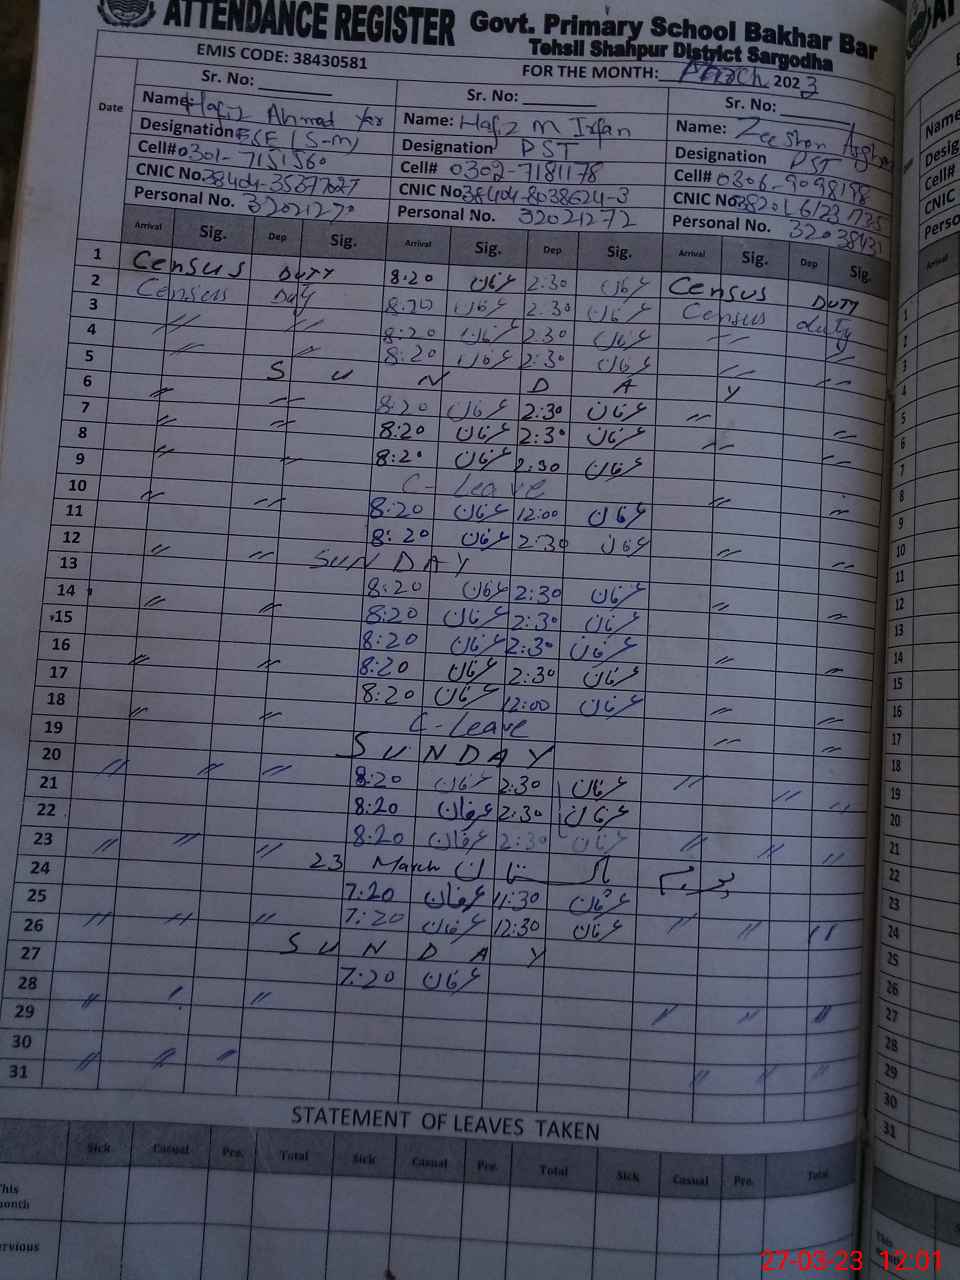 ATTENDANCE REGISTER Govt. Primary School Bakhar Bar
Tehsil Shahpur District Sargodha
EMIS CODE: 38430581 FOR THE MONTH: March 2023
Sr. No: Sr. No: Sr. No:
Date
Name: Hafiz Ahmad Yar Name: Hafiz M Irfan Name: Zeeshan
Designation ESE (S-M) Designation PST Designation PST
Cell# 0301-7151560 Cell# 0302-7181178 Cell# 0306-9098198
CNIC No. CNIC No. 38404-8038624-3 CNIC No.
Personal No. Personal No. 32021272 Personal No.
Arrival Sig. Dep Sig. Arrival Sig. Dep Sig. Arrival Sig. Dep Sig.
1 Census DUTY 8:20 عرفان 2:30 عرفان Census DUTY
2 Census Duty 8:20 عرفان 2:30 عرفان Census duty
3 〃 〃 8:20 عرفان 2:30 عرفان 〃 〃
4 〃 〃 8:20 عرفان 2:30 عرفان 〃 〃
5 S U N D A Y
6 〃 〃 8:20 عرفان 2:30 عرفان 〃 〃
7 〃 〃 8:20 عرفان 2:30 عرفان 〃 〃
8 〃 〃 8:20 عرفان 2:30 عرفان
9 C-Leave
10 〃 〃 8:20 عرفان 12:00 عرفان 〃 〃
11 8:20 عرفان 2:30 عرفان
12 〃 〃 SUNDAY 〃 〃
13 8:20 عرفان 2:30 عرفان
14 〃 〃 8:20 عرفان 2:30 عرفان 〃 〃
15 8:20 عرفان 2:30 عرفان
16 〃 〃 8:20 عرفان 2:30 عرفان 〃 〃
17 8:20 عرفان 12:00 عرفان
18 〃 〃 C-Leave 〃 〃
19 SUNDAY 〃 〃
20 〃 〃 〃 8:20 عرفان 2:30 عرفان 〃 〃 〃
21 8:20 عرفان 2:30 عرفان
22 8:20 عرفان 2:30 عرفان
23 〃 〃 〃 23 March پاکستان 〃 〃 〃
24 7:20 عرفان 11:30 عرفان
25 7:20 عرفان 12:30 عرفان
26 〃 〃 〃 S U N D A Y 〃 〃 〃
27 7:20 عرفان
28
29 〃 〃 〃 〃 〃
30
31 〃 〃 〃 〃 〃 〃
STATEMENT OF LEAVES TAKEN
Sick Casual Pre. Total Sick Casual Pre. Total Sick Casual Pre. Total
This
month
27-03-23 12:01